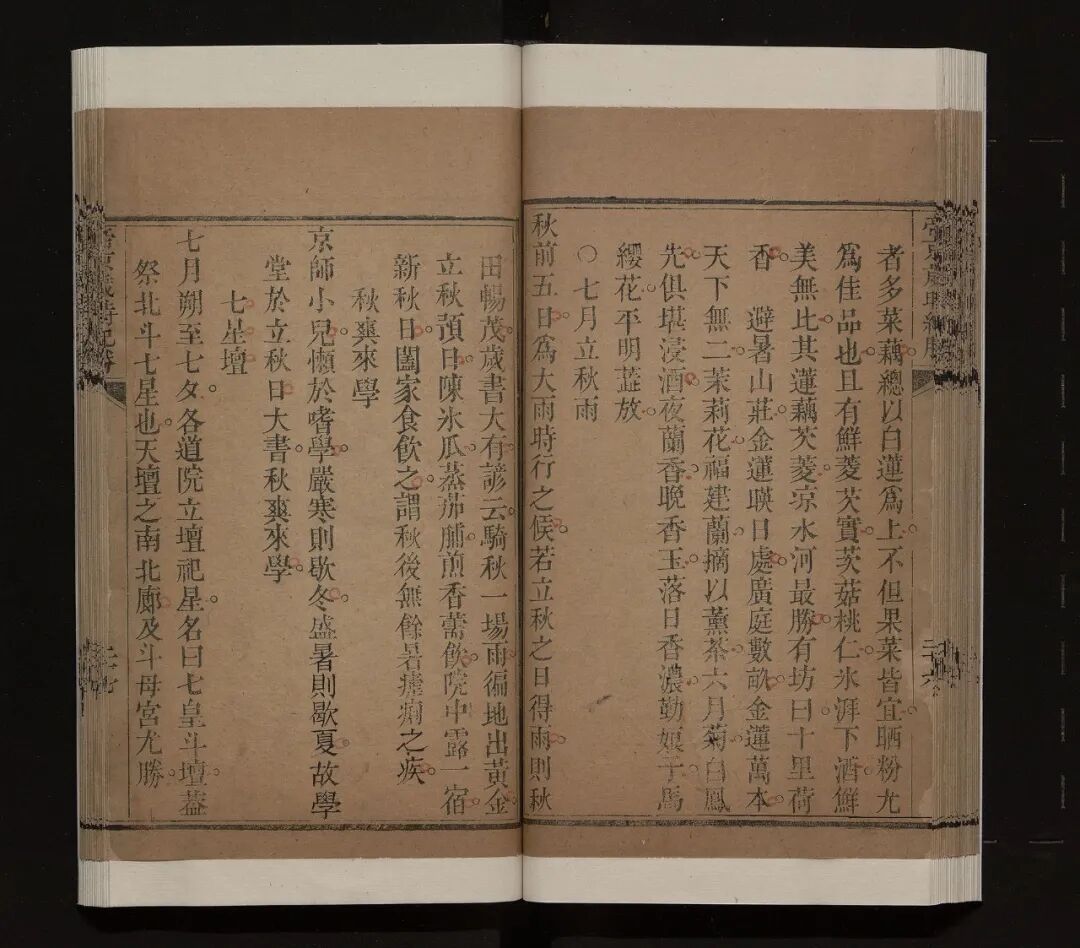 者多菜藕總以白蓮爲上不但果菜皆宜晒粉尤
爲佳品也且有鮮菱芡實茨菇桃仁氷湃下酒鮮
美無比其蓮藕芡菱凉水河最勝有坊曰十里荷
香 避暑山莊金蓮暎日處廣庭數畝金蓮萬本
天下無二茉莉花福建蘭摘以薰茶六月菊白鳳
先俱堪浸酒夜蘭香晚香玉落日香濃勤娘子馬
纓花平明蕋放
○七月立秋雨
秋前五日爲大雨時行之候若立秋之日得雨則秋
田暢茂歲書大有諺云騎秋一場雨徧地出黃金
立秋預日陳氷瓜蒸茄脯煎香薷飲院中露一宿
新秋日闔家食飲之謂秋後無餘暑瘧痢之疾
秋爽來學
京師小兒懶於嗜學嚴寒則歇冬盛暑則歇夏故學
堂於立秋日大書秋爽來學
七星壇
七月朔至七夕各道院立壇祀星名曰七皇斗壇蓋
祭北斗七星也天壇之南北廊及斗母宮尤勝